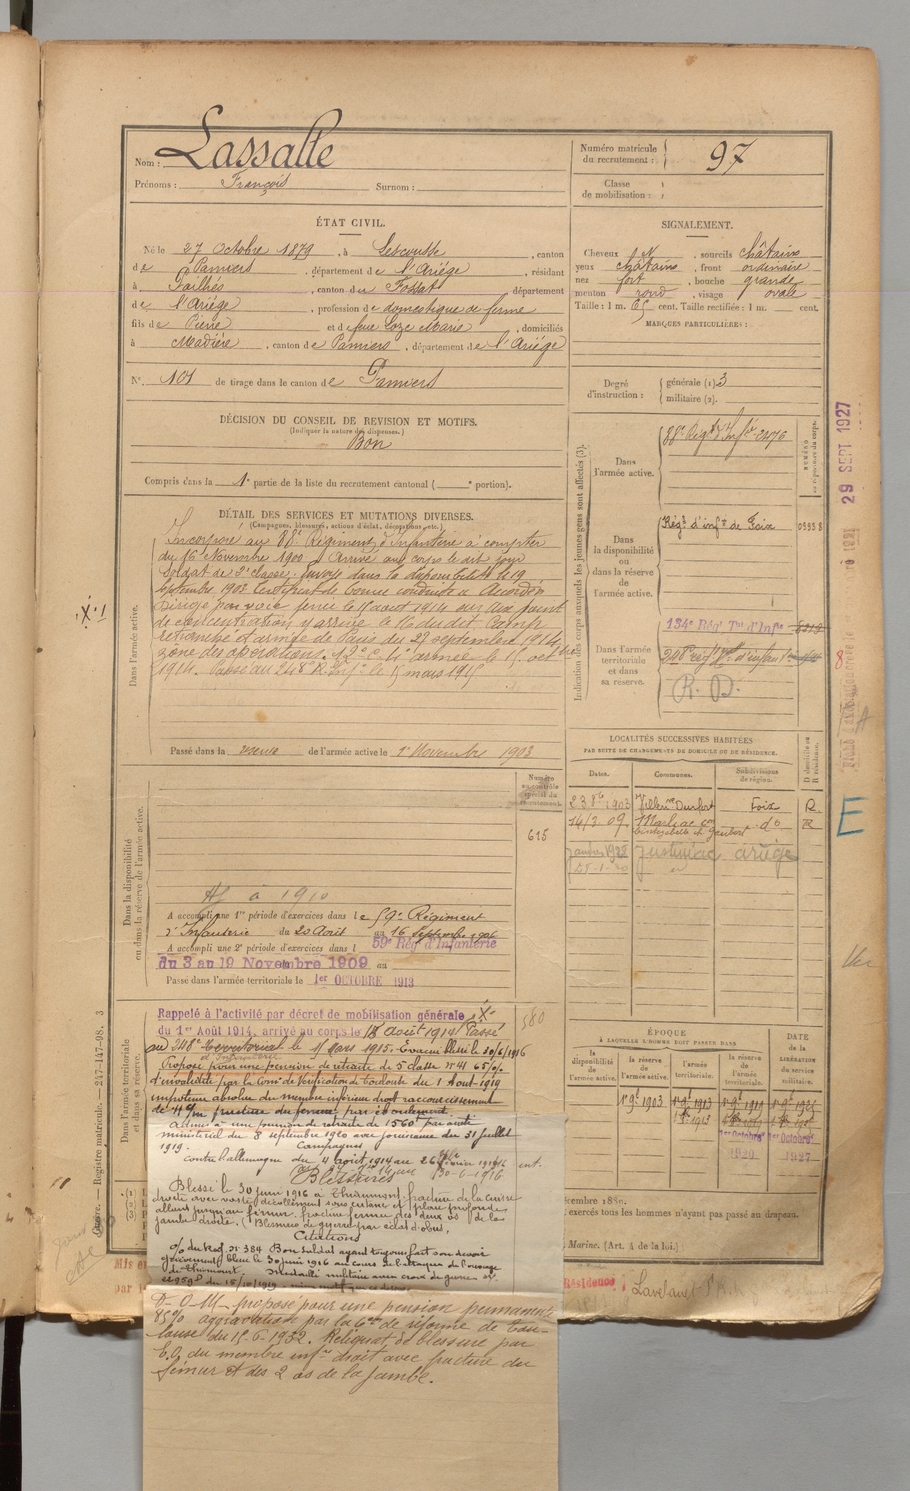 Nom : Lassalle
Prénoms : François Surnom :
Numéro matricule du recrutement : 97
Classe de mobilisation :
ÉTAT CIVIL.
Né le 27 Octobre 1879, à Lescousse, canton
de Pamiers, département de l'Ariége, résidant
à Pailhés, canton du Fossat département
de l'Ariége, profession de domestique de ferme
fils de Pierre et de feue Loze Marie, domiciliés
à Madière, canton de Pamiers, département de l'Ariége
N° 101 de tirage dans le canton de Pamiers
SIGNALEMENT.
Cheveux N, sourcils châtains
yeux châtains, front ordinaire
nez fort, bouche grande
menton rond, visage ovale
Taille : 1 m. 65 cent. Taille rectifiée : 1 m. cent.
MARQUES PARTICULIÈRES :
Degré d'instruction : générale (1) 3
militaire (2).
DÉCISION DU CONSEIL DE REVISION ET MOTIFS.
(Indiquer la nature des dispenses.)
Bon
Compris dans la 1e partie de la liste du recrutement cantonal ( e portion).
DÉTAIL DES SERVICES ET MUTATIONS DIVERSES.
(Campagnes, blessures, actions d'éclat, décorations, etc.)
Dans l'armée active.
Incorporé au 88e Régiment d'Infanterie à compter
du 16 Novembre 1900. Arrivé au corps le dit jour
soldat de 2e classe. Envoyé dans la disponibilité le 19
septembre 1903. Certificat de bonne conduite « Accordé »
Dirigé par voie ferrée le 15 aout 1914 sur aux point
de concentration y arrive le 16 du dit Camp
retranché d'armée de Paris du 27 septembre 1914
zone des opérations. 12e C. 4e armée le 15 octbre
1914. Passé au 248e R. Infie le 15 mars 1915
Passé dans la réserve de l'armée active le 1er Novembre 1903
Indication des corps auxquels les jeunes gens sont affectés (3).
Dans l'armée active.
88e Régt d'Infie 2476
Dans la disponibilité ou dans la réserve de l'armée active.
Régt d'infie de Foix
Dans l'armée territoriale et dans sa réserve.
134e Rég' Ter d'Infie
R. D.
29 SEPT 1927
E
LOCALITÉS SUCCESSIVES HABITÉES
PAR SUITE DE CHANGEMENTS DE DOMICILE OU DE RÉSIDENCE.
Dates. Communes. Subdivisions de région. D domicile ou R résidence.
23 8bre 1903 Villenve Durfort Foix R
14/3 09 Marliac con do R
Justiniac ariége
25-1-30
Dans la disponibilité ou dans la réserve de l'armée active.
Numéro au contrôle spécial du recrutement.
615
à 1910
A accompli une 1re période d'exercices dans le 59e Régiment
d'Infanterie du 20 Août au 16 Septembre 1906
A accompli une 2e période d'exercices dans l 59e Rég d'Infanterie
du 3 au 19 Novembre 1909 au
Passé dans l'armée territoriale le 1er OCTOBRE 1913
Dans l'armée territoriale et dans sa réserve.
580
Rappelé à l'activité par décret de mobilisation générale
du 1er Août 1914, arrivé au corps le 15 août 1914 Passé
au 248e territorial le 15 mars 1915. Evacué blessé le 30/6/1916
Proposé pour une pension de retraite de 5e classe No 41 65%
d'invalidité par la Comon de Vérification de Toulouse du 1 Aout 1919
impotence absolue du membre inférieur droit raccourcissement
de 4 c/m fracture du fémur par éboulement.
Admis à une pension de retraite de 1560f par arrêté
ministeriel du 8 septembre 1920 avec jouissance du 31 juillet
1919.
Campagnes
contre l'allemagne du 4 août 1914 au
Blessures
Blessé le 30 juin 1916 à Thiaumont, fracture de la cuisse
droite avec vaste décollement sous cutané et plaie profonde
allant jusqu'au fémur, fracture fermée des deux os de la
jambe droite. (Blessures de guerre par éclat d'obus)
Citations
o/o du Regt No 384 Bon Soldat ayant toujours fait son devoir
grièvement blessé le 30 juin 1916 au cours de l'attaque de l'ouvrage
de Thiaumont. Médaillé militaire avec croix de guerre
D. O. M. proposé pour une pension permanente
85% aggravation par la Con de réforme de Tou-
louse du 15-6-1932. Reliquat de blessure par
E.O. du membre infr droit avec fracture du
fémur et des 2 os de la jambe.
ÉPOQUE
À LAQUELLE L'HOMME DOIT PASSER DANS
DATE DE LA LIBÉRATION DU SERVICE militaire.
la disponibilité de l'armée active. la réserve de l'armée active. l'armée territoriale. la réserve de l'armée territoriale.
1r 9e 1903 1r 9e 1913 1r 9e 1919
1er Octobre 1920 1er Octobre 1927
décembre 1880.
exercés tous les hommes n'ayant pas passé au drapeau.
Marine. (Art. 4 de la loi.)
Résidence : Lavelanet
Guerre. — Registre matricule. — 247-147-98. 3